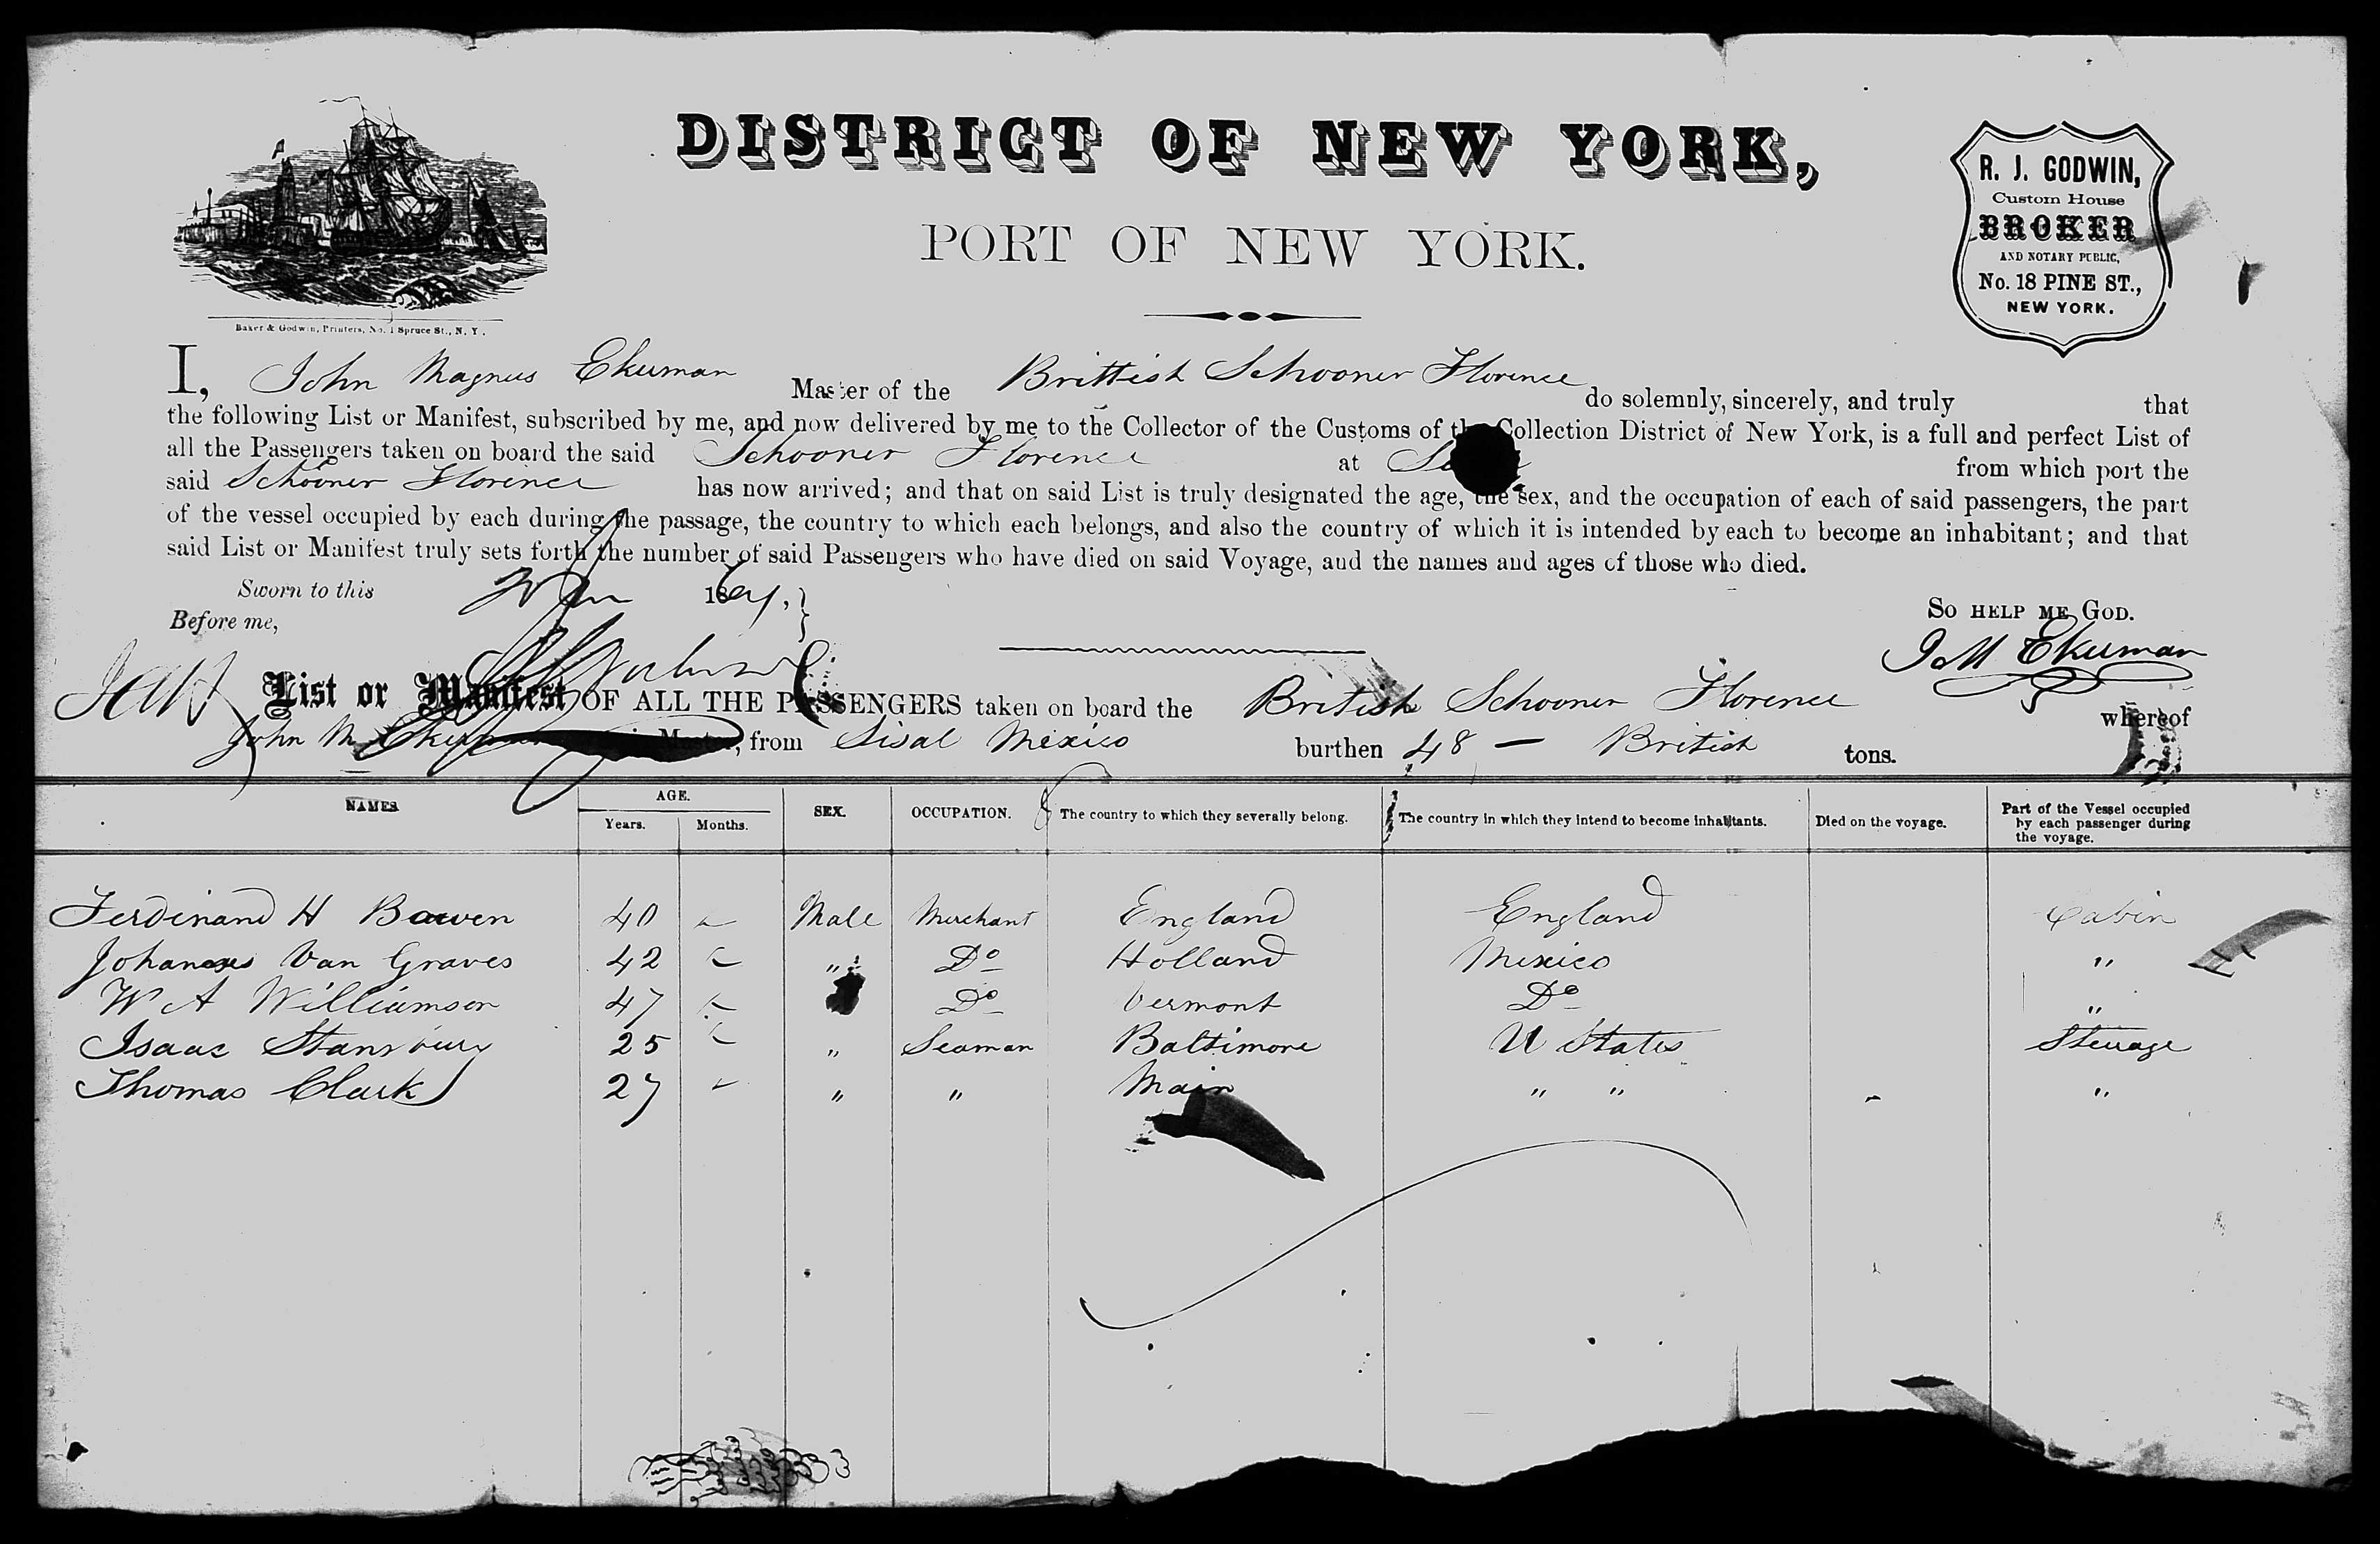 DISTRICT OF NEW YORK,
PORT OF NEW YORK.
R. J. GODWIN,
Custom House
BROKER
AND NOTARY PUBLIC,
No. 18 PINE ST.,
NEW YORK.
Baker & Godwin, Printers, No. 1 Spruce St., N. Y.
I, John Magnus Ekuman Master of the Brittish Schooner Florence do solemnly, sincerely, and truly that
the following List or Manifest, subscribed by me, and now delivered by me to the Collector of the Customs of the Collection District of New York, is a full and perfect List of
all the Passengers taken on board the said Schooner Florence at from which port the
said Schooner Florence has now arrived; and that on said List is truly designated the age, the sex, and the occupation of each of said passengers, the part
of the vessel occupied by each during the passage, the country to which each belongs, and also the country of which it is intended by each to become an inhabitant; and that
said List or Manifest truly sets forth the number of said Passengers who have died on said Voyage, and the names and ages of those who died.
Sworn to this 18
Before me,
So HELP ME GOD.
J M Ekuman
List or Manifest OF ALL THE PASSENGERS taken on board the British Schooner Florence whereof
John M Ekuman is Master, from Sisal Mexico burthen 48 — British tons.
NAMES AGE. Years. Months. SEX. OCCUPATION. The country to which they severally belong. The country in which they intend to become inhabitants. Died on the voyage. Part of the Vessel occupied by each passenger during the voyage.
Ferdinand H Bowen 40 Male Merchant England England Cabin
Johannes Van Graves 42 " Do Holland Mexico "
W A Williamson 47 Do Vermont Do "
Isaac Stansbury 25 " Seaman Baltimore U States Steerage
Thomas Clark 27 " " Main " " "